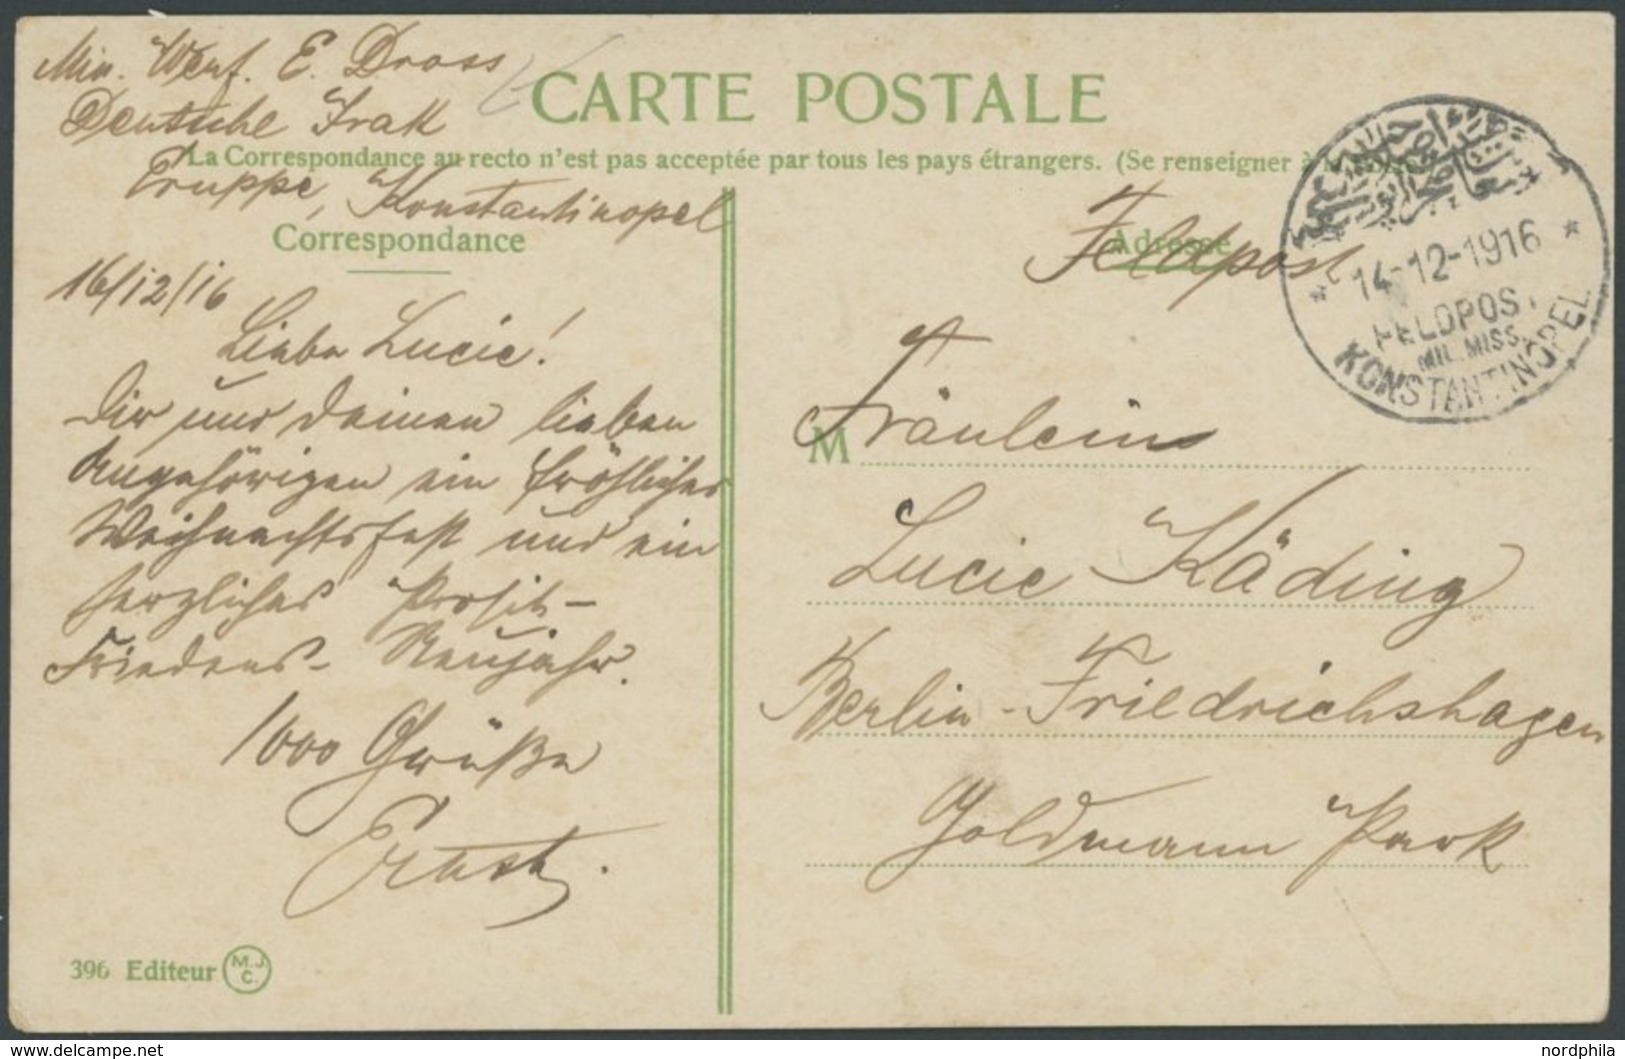 Min. Werf. E. Dross
Deutsche Irak
Truppe, Konstantinopel
CARTE POSTALE
La Correspondance au recto n'est pas acceptée par tous les pays étrangers. (Se renseigner à la
Correspondance
Adresse
Feldpost
14-12-1916
FELDPOST
MIL. MISS.
KONSTANTINOPEL
16/12/16
Liebe Lucie!
Dir und deinen lieben
Angehörigen ein fröhliches
Weihnachtsfest und ein
herzliches Prosit-
Friedens- Neujahr.
1000 Grüße
Ernst.
M
Fräulein
Lucie Käding
Berlin-Friedrichshagen
Goldmann Park
396 Editeur M.J.C.
delcampe.net
nordphila